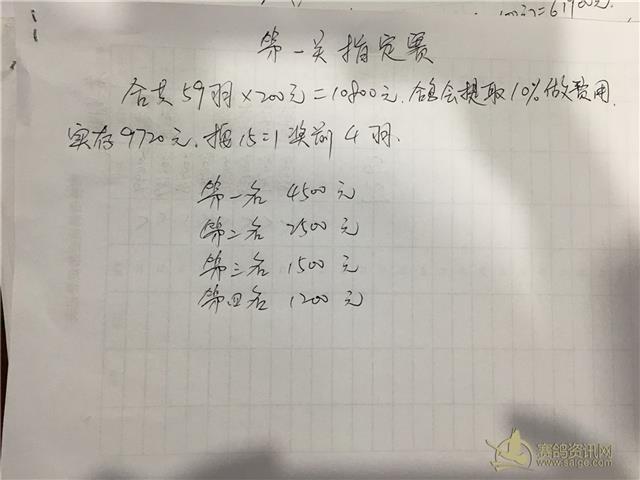 第一关指定赛
合共59羽×200元=10800元.鸽会提取10%做费用
实存9720元.按15=1奖前4羽.
第一名 4500元
第二名 2500元
第三名 1500元
第四名 1200元
赛鸽资讯网
www.saige.com